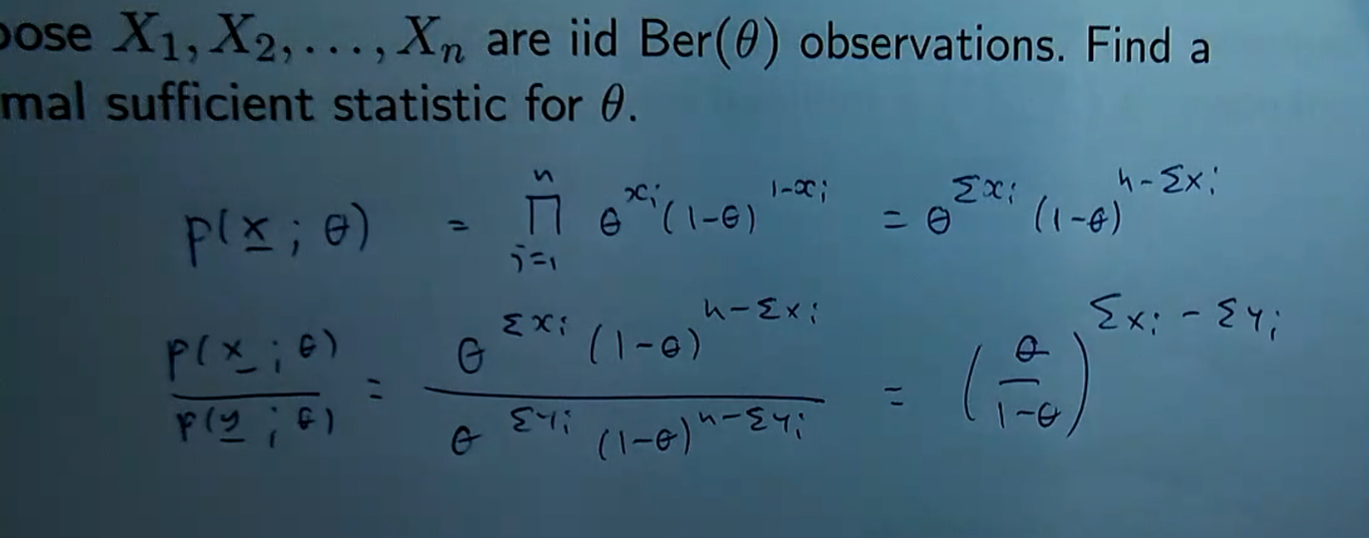 pose X₁, X₂, ..., Xₙ are iid Ber(θ) observations. Find a
mal sufficient statistic for θ.
p(x̲ ; θ) = ∏_{i=1}^{n} θ^{xᵢ} (1-θ)^{1-xᵢ} = θ^{Σxᵢ} (1-θ)^{n-Σxᵢ}
p(x̲ ; θ) / p(y̲ ; θ) = θ^{Σxᵢ} (1-θ)^{n-Σxᵢ} / θ^{Σyᵢ} (1-θ)^{n-Σyᵢ} = (θ / 1-θ)^{Σxᵢ - Σyᵢ}